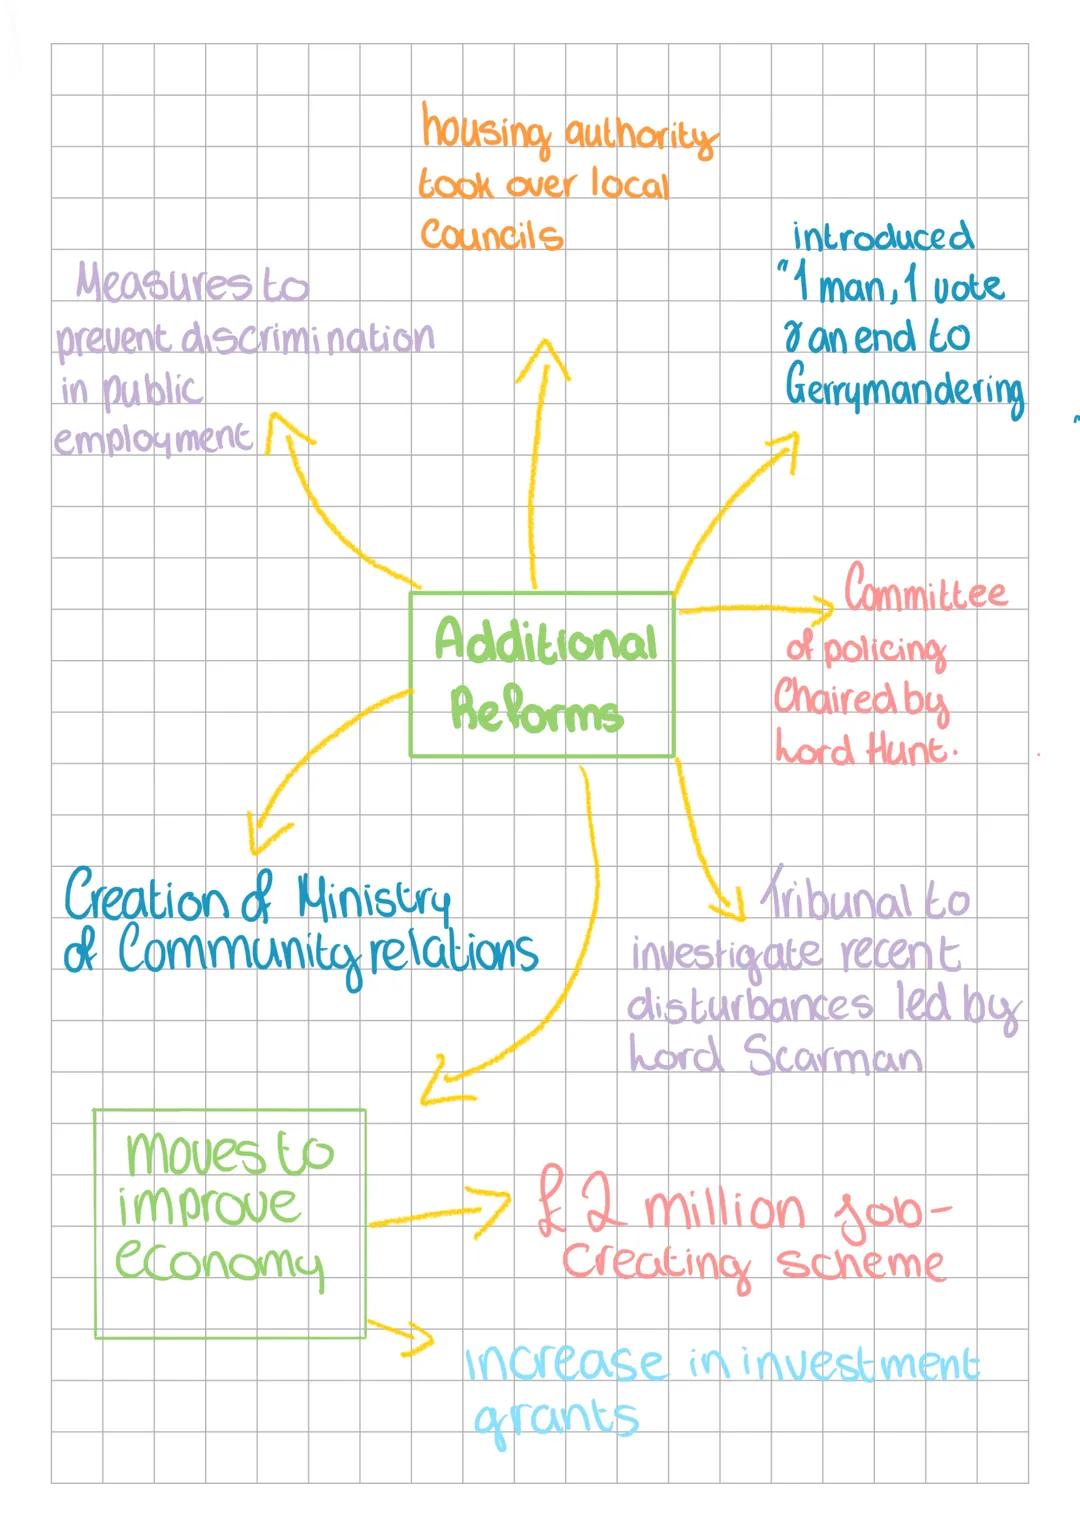 housing authority
took over local
Councils
introduced
"1 man, 1 vote
& an end to
Gerrymandering
Measures to
prevent discrimination
in public
employment
Additional
Reforms
Committee
of policing
Chaired by
Lord Hunt.
Creation of Ministry
of Community relations
Tribunal to
investigate recent
disturbances led by
Lord Scarman
moves to
improve
economy
£2 million job-
Creating scheme
increase in investment
grants